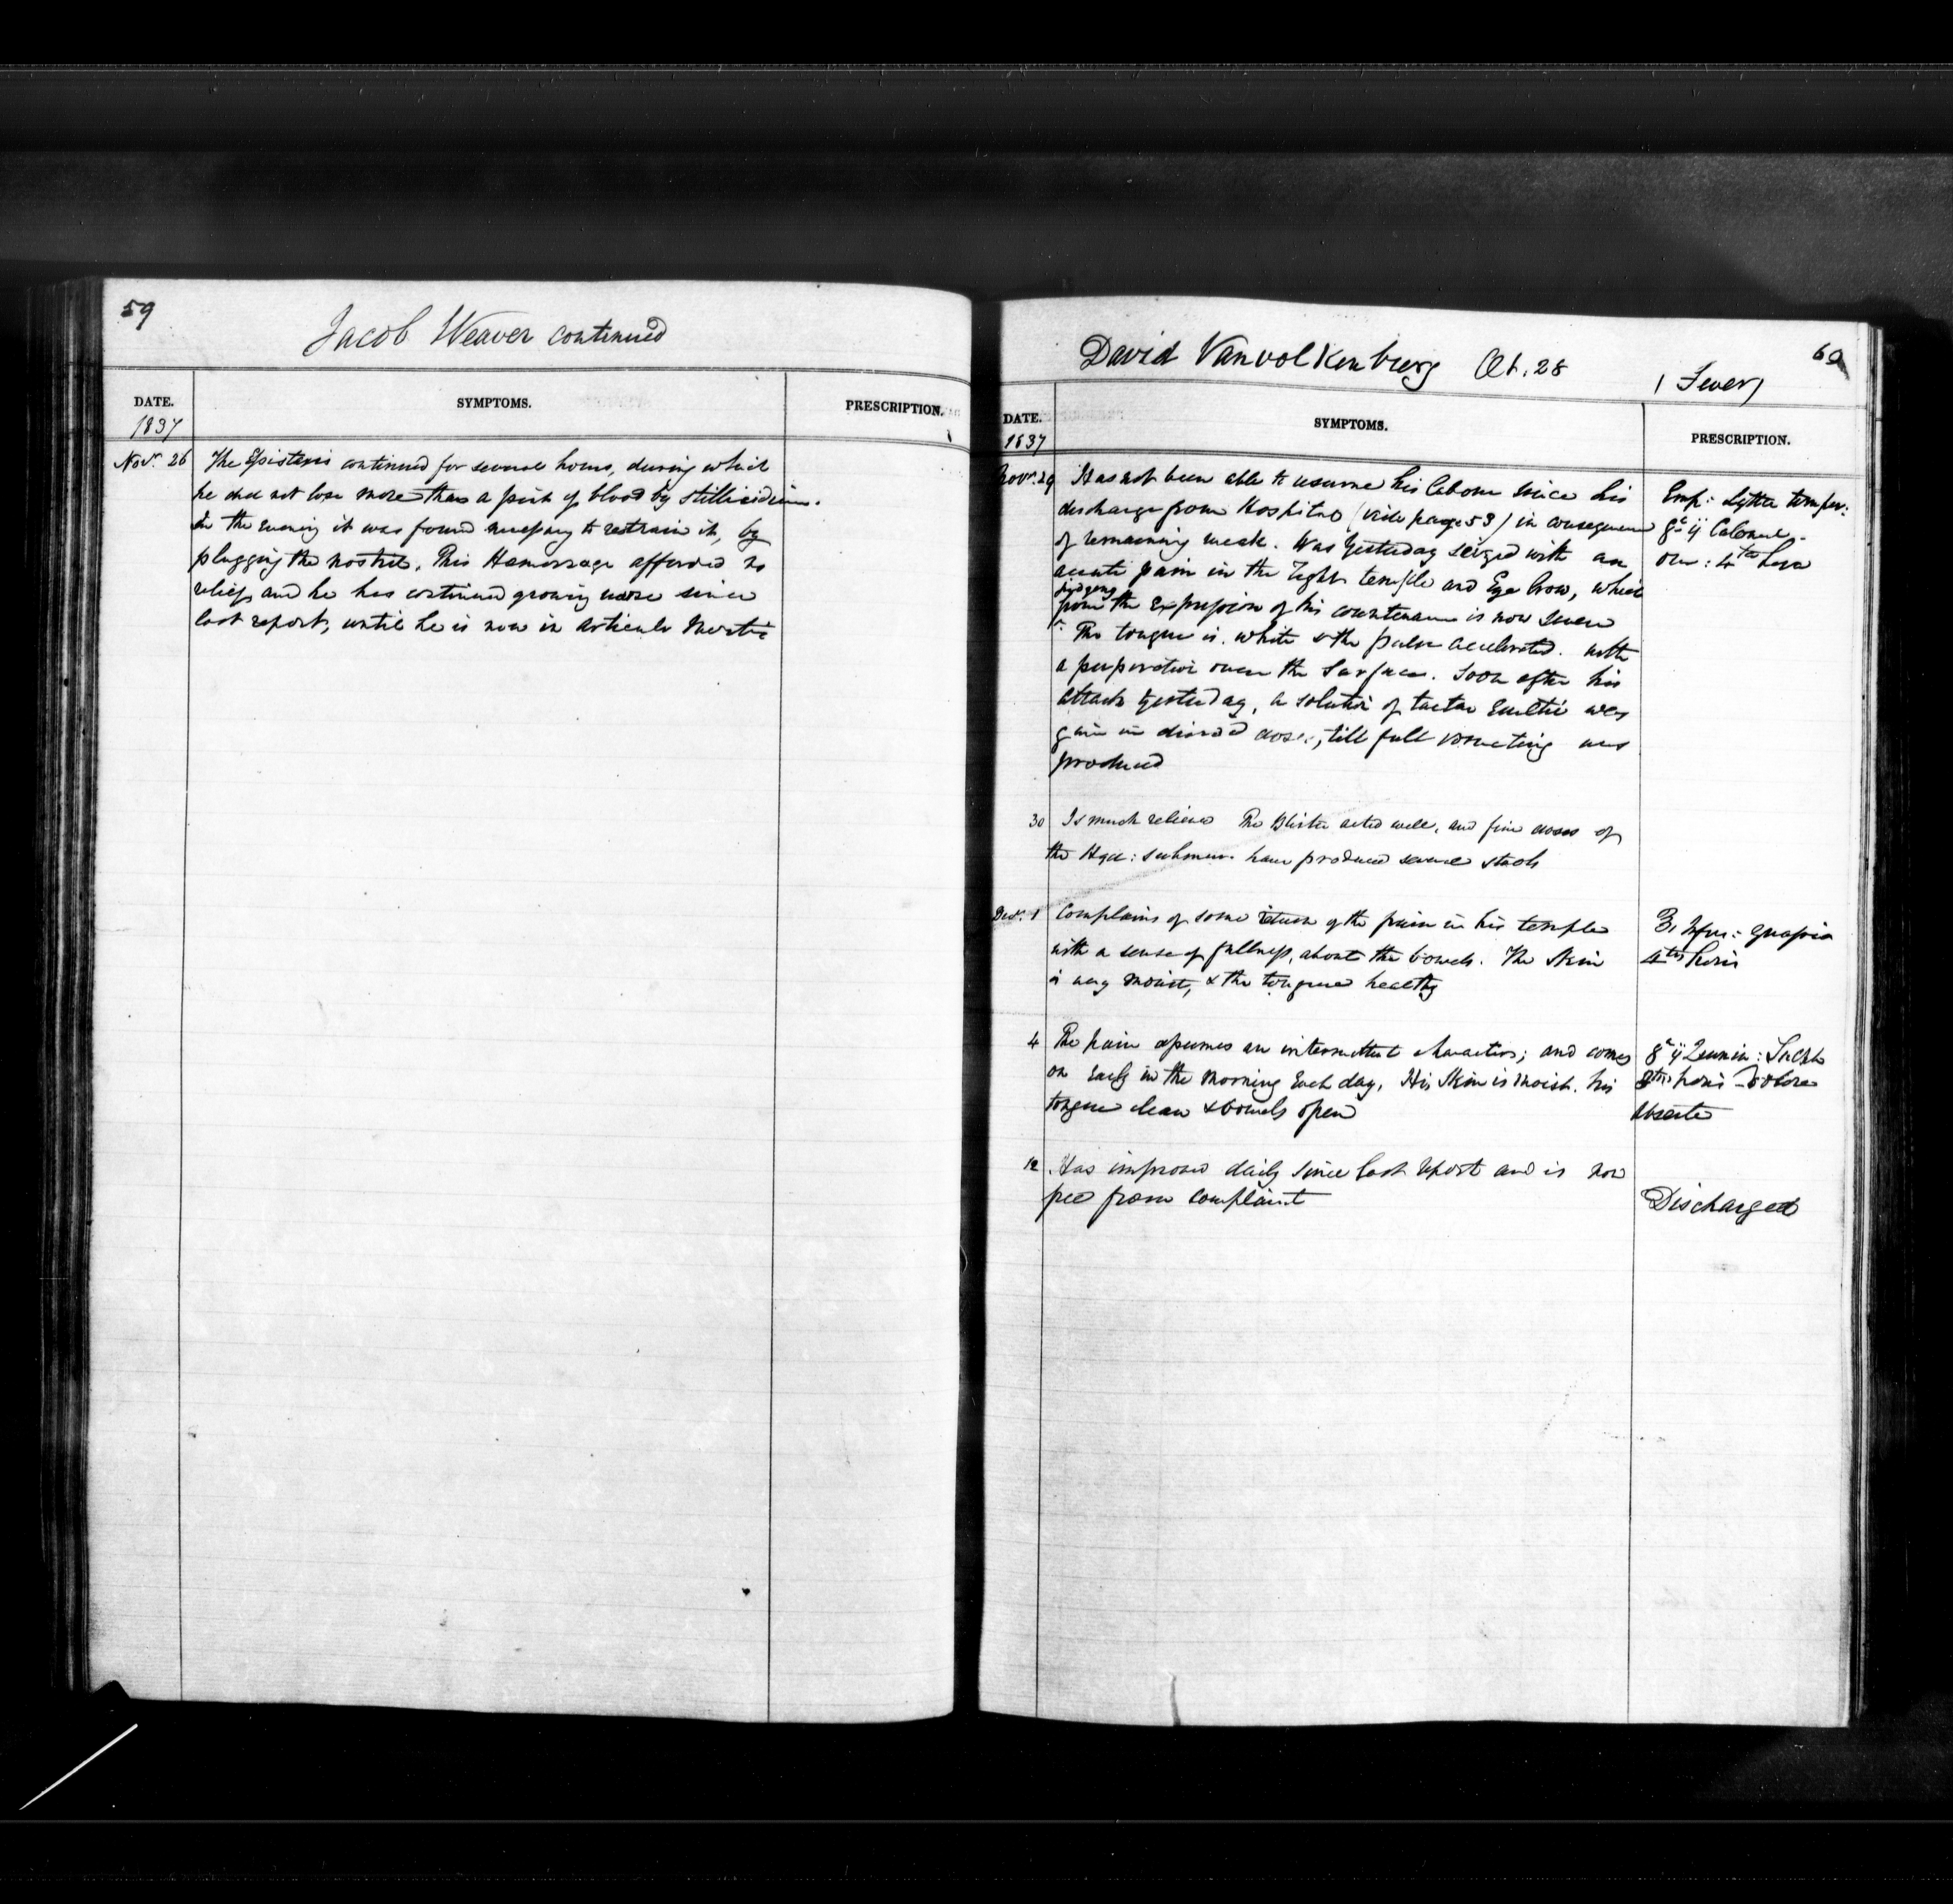 59
Jacob Weaver continued
DATE. SYMPTOMS. PRESCRIPTION.
1837
Novr. 26 The Epistaxis continued for several hours, during which
he did not lose more than a pint of blood by stillicidium.
In the evening it was found necessary to restrain it, by
plugging the nostril. This Hemorrage afforded no
relief, and he has continued growing worse since
last report, until he is now in articulo Mortis
60
David Vanvolkenburg Æt. 28
( Fever)
DATE. SYMPTOMS. PRESCRIPTION.
1837
Novr. 29 Has not been able to resume his labour since his
discharge from Hospital (vide page 53) in consequence
of remaining weak. Was Yesterday seized with an
acute pain in the right temple and Eye brow, which
judging
from the Expression of his countenance is now severe
The tongue is white & the pulse accelerated. with
a perspiration over the Surface. Soon after his
attack yesterday, a solution of tartar Emetic was
given in divided doses, till full vomiting was
produced
Emp: Lyttæ tempor:
gr ij Calomel
om: 4ta hora
30 Is much relieved The Blister acted well, and five doses of
the Hyd: submur. have produced several stools
Decr. 1 Complains of some return of the pain in his temple
with a sense of fullness, about the bowels. The Skin
is very moist, & the tongue healthy
Infus: Quassia
4tis horis
4 The pain assumes an intermittent character; and comes
on Early in the morning Each day, His Skin is moist. his
tongue clean & bowels open
gr ij Quinin: Sulph
horis dolore
absente
12 Has improved daily since last report and is now
free from complaint
Discharged